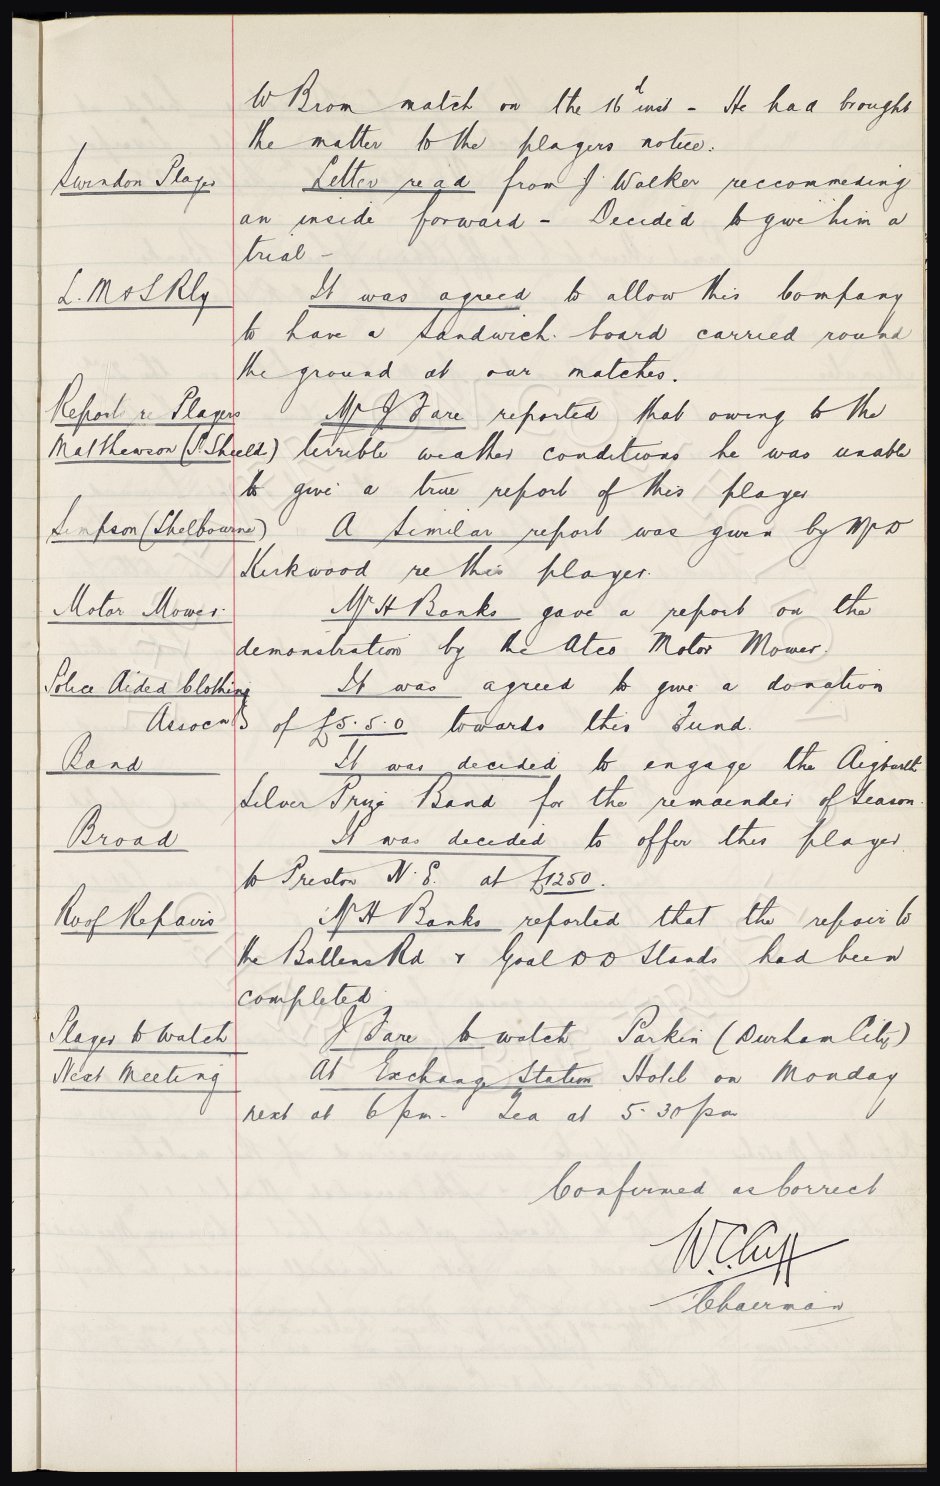 W Brom match on the 16th inst - He had brought
the matter to the players notice.
Swindon Player Letter read from J Walker reccommeding
an inside forward - Decided to give him a
trial -
L. M & S Rly It was agreed to allow this Company
to have a sandwich board carried round
the ground at our matches.
Report re Players Mr J Fare reported that owing to the
Matthewson (S. Shields) terrible weather conditions he was unable
to give a true report of this player
Simpson (Shelbourne) A similar report was given by Mr D
Kirkwood re this player.
Motor Mower Mr H Banks gave a report on the
demonstration by the Atco Motor Mower.
Police Aided Clothing It was agreed to give a donation
Assocn of £5.5.0 towards this Fund.
Band It was decided to engage the Aigburth
Silver Prize Band for the remainder of season.
Broad It was decided to offer this player
to Preston N. E. at £1250.
Roof Repairs Mr H Banks reported that the repair to
the Bullens Rd & Goodison Stands had been
completed
Player to watch J Fare to watch Parkin (Durham City)
Next Meeting At Exchange Station Hotel on Monday
next at 6 pm - Tea at 5.30 pm
Confirmed as Correct
W.C. Cuff
Chairman